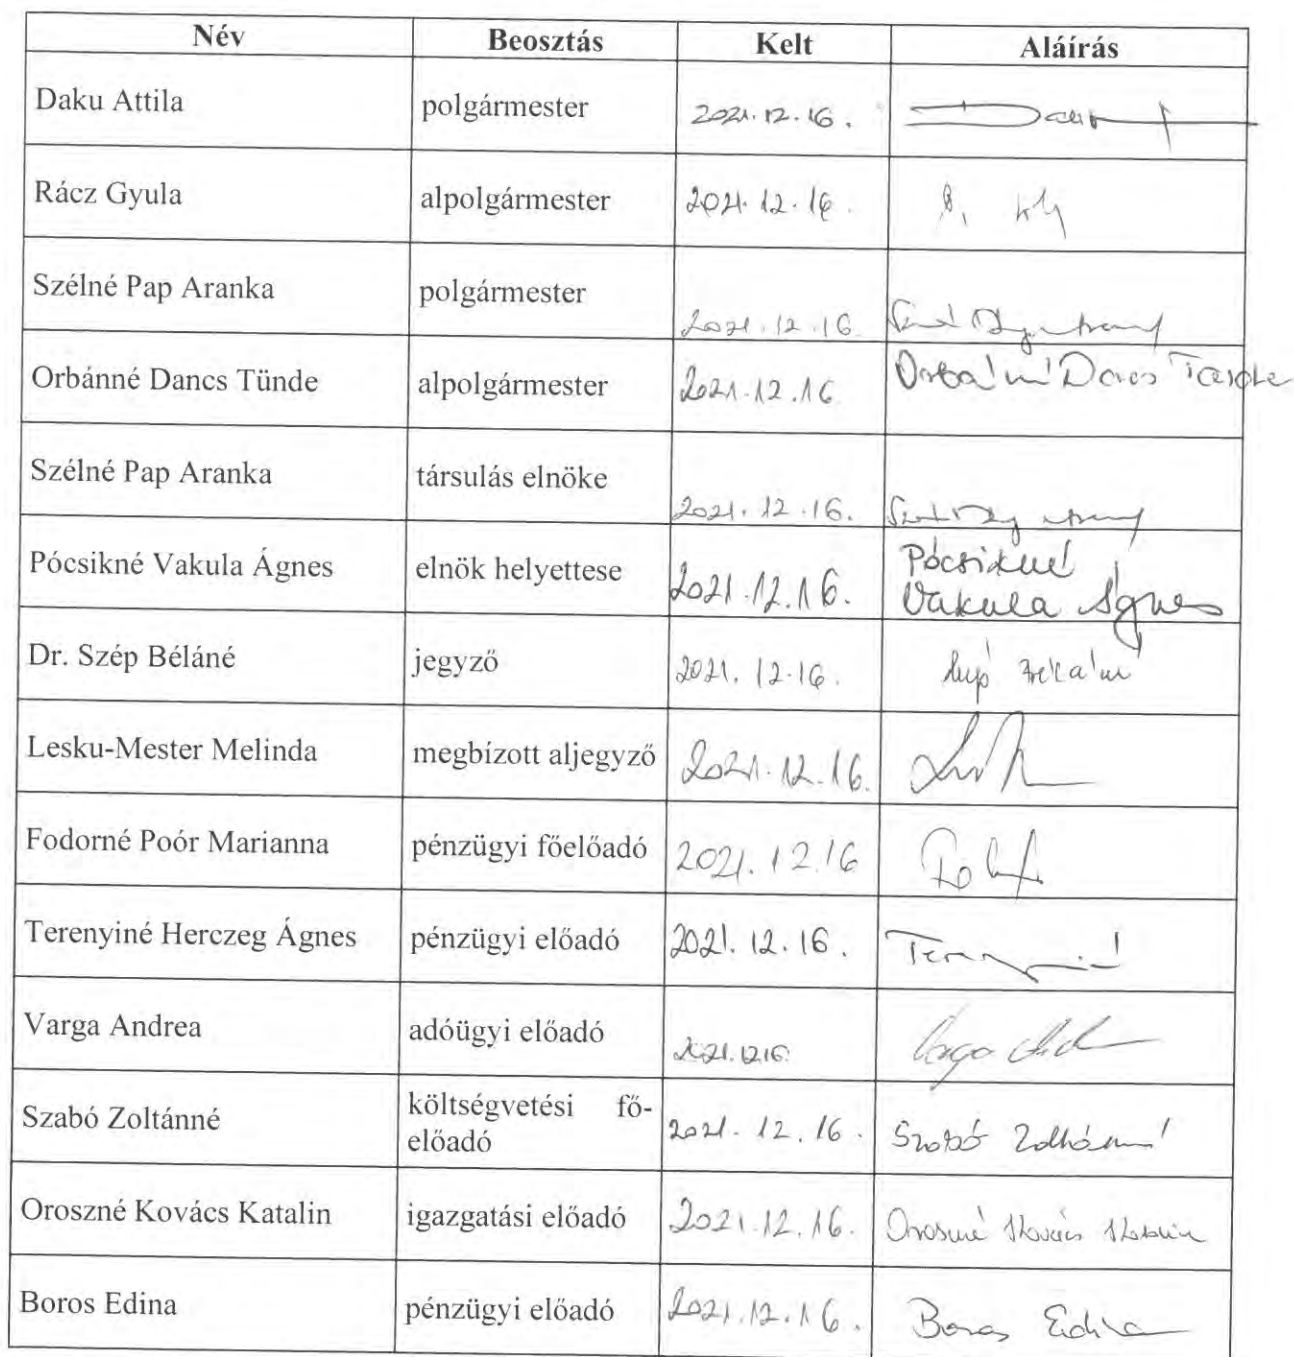 Név Beosztás Kelt Aláírás
Daku Attila polgármester 2021.12.16.
Rácz Gyula alpolgármester 2021.12.16.
Szélné Pap Aranka polgármester 2021.12.16.
Orbánné Dancs Tünde alpolgármester 2021.12.16 Orbánné Dancs Tünde
Szélné Pap Aranka társulás elnöke 2021.12.16.
Pócsikné Vakula Ágnes elnök helyettese 2021.12.16. Pócsikné
Vakula Ágnes
Dr. Szép Béláné jegyző 2021.12.16.
Lesku-Mester Melinda megbízott aljegyző 2021.12.16.
Fodorné Poór Marianna pénzügyi főelőadó 2021.12.16
Terenyiné Herczeg Ágnes pénzügyi előadó 2021.12.16.
Varga Andrea adóügyi előadó 2021.12.16. Varga
Szabó Zoltánné költségvetési fő-
előadó 2021.12.16. Szabó Zoltánné
Oroszné Kovács Katalin igazgatási előadó 2021.12.16. Oroszné Kovács Katalin
Boros Edina pénzügyi előadó 2021.12.16. Boros Edina